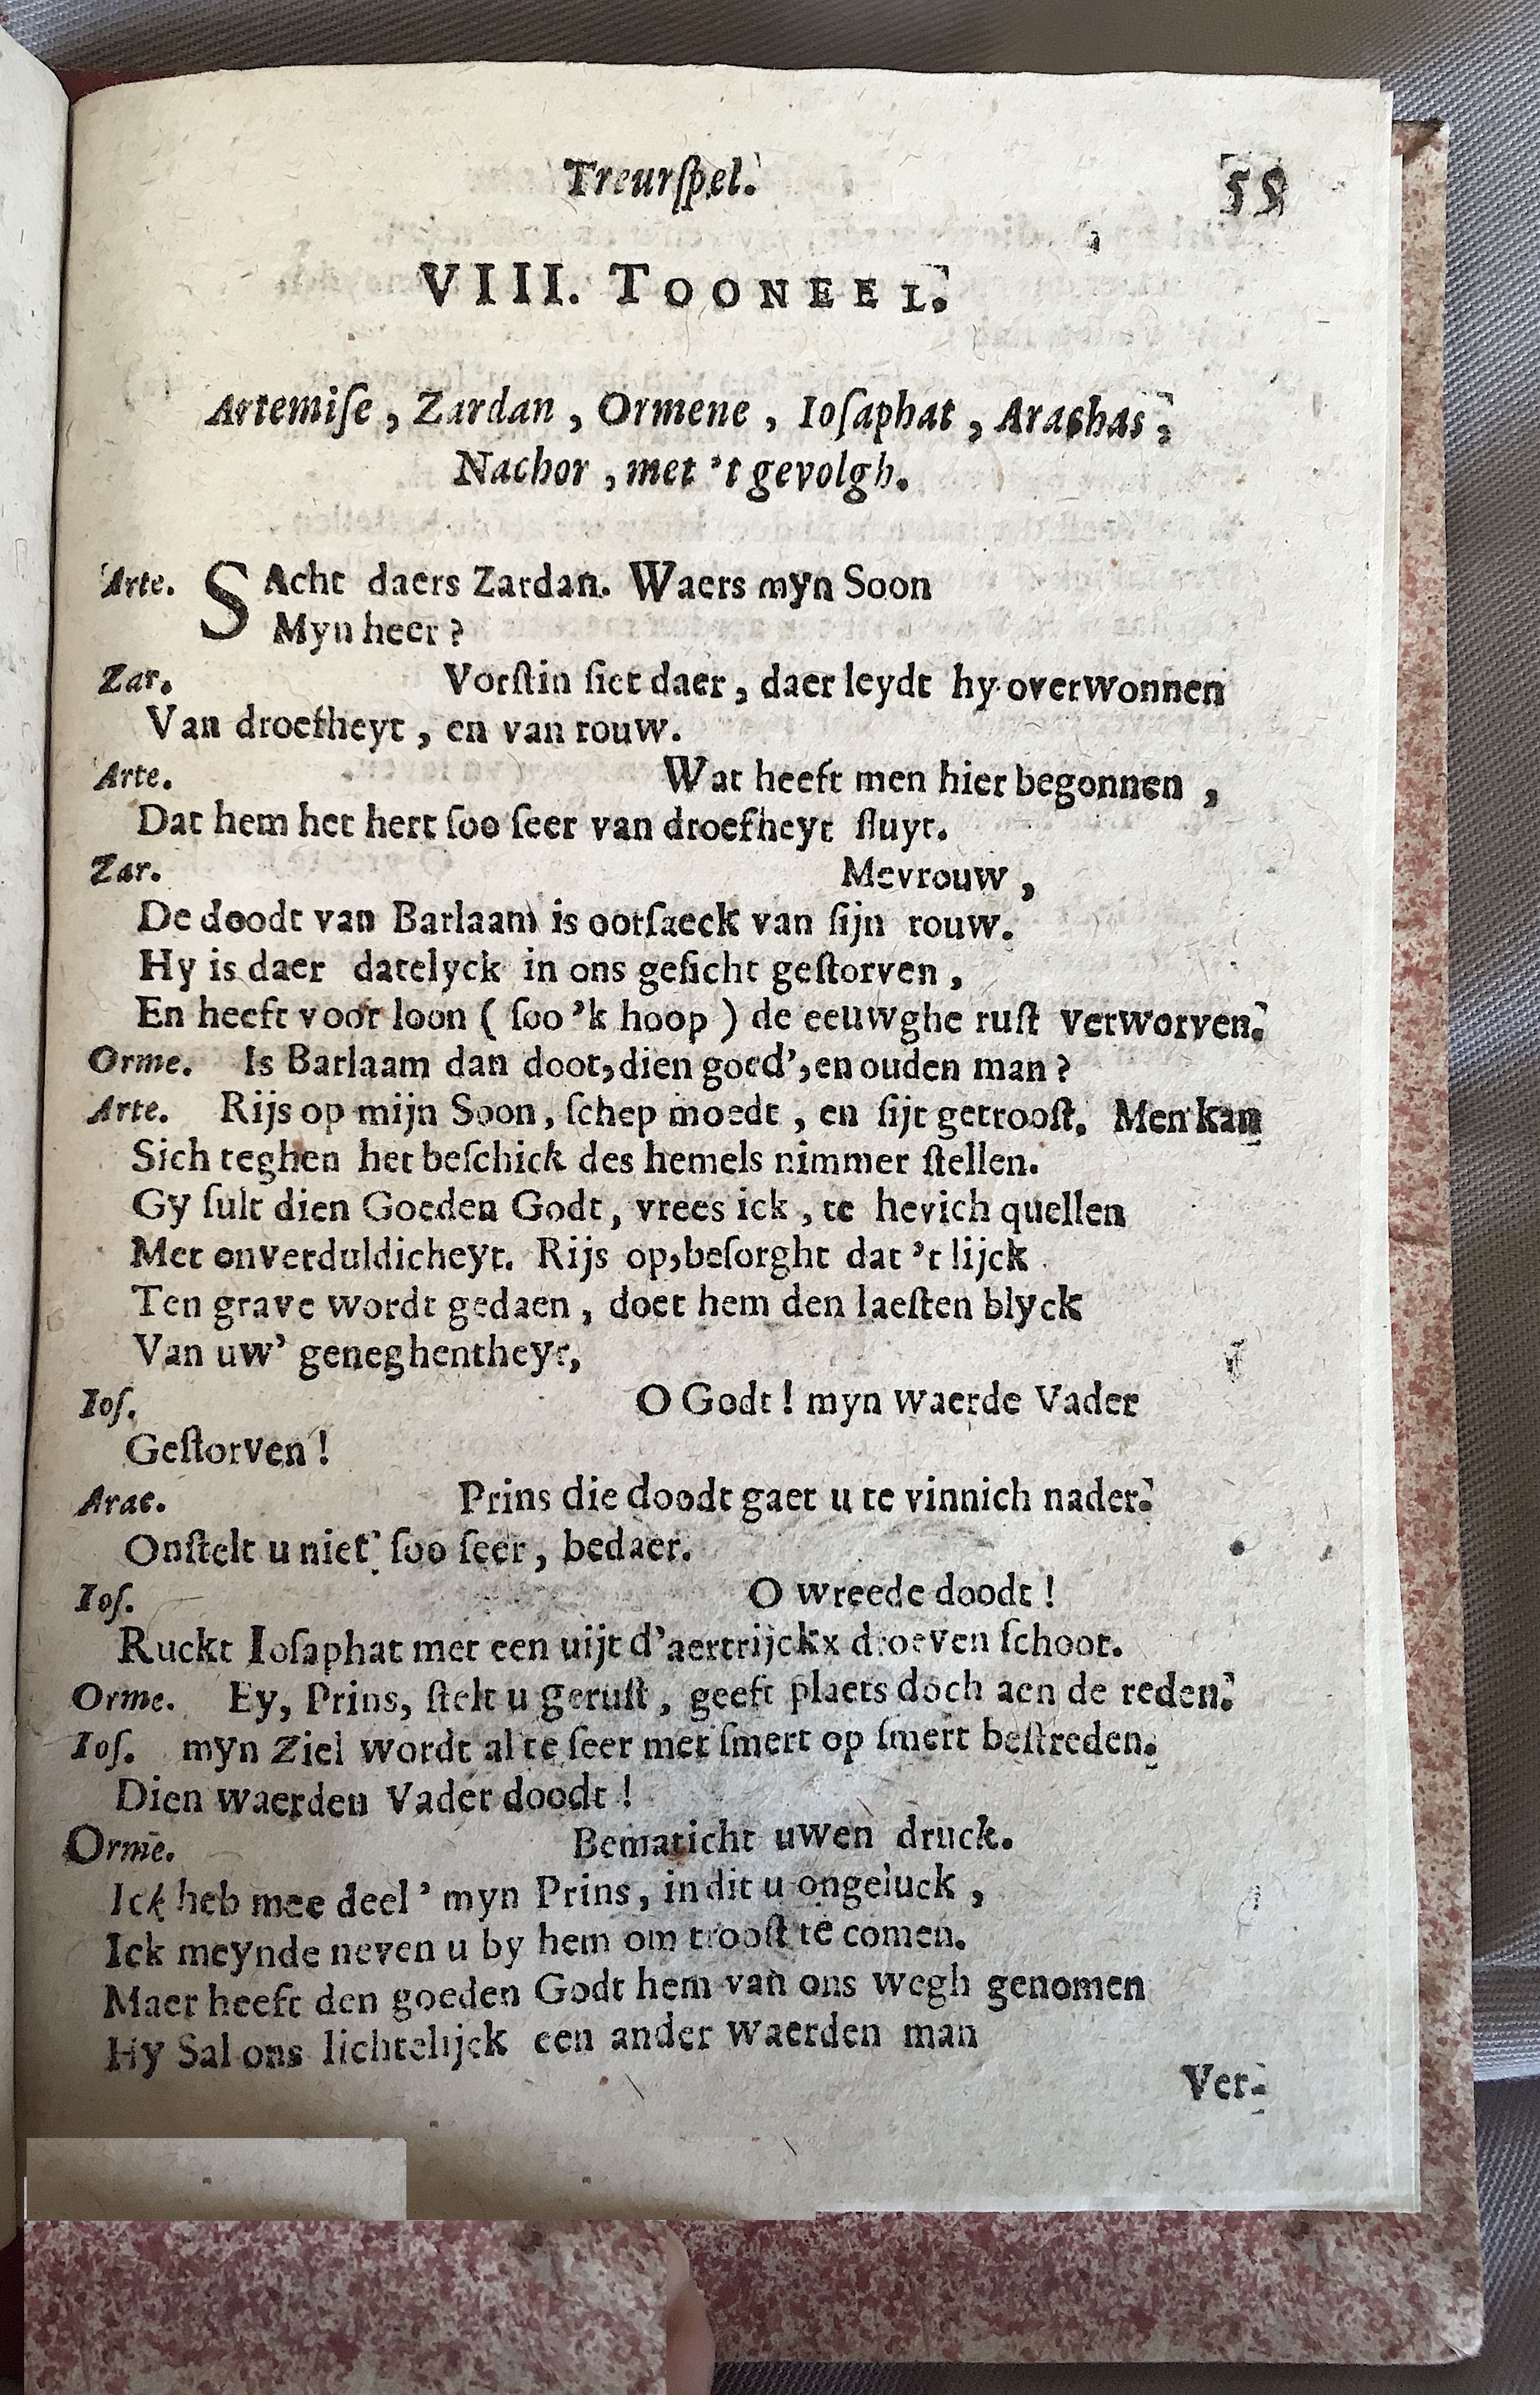 Treurſpel. 55
VIII. TOONEEL.
Artemiſe, Zardan, Ormene, Ioſaphat, Arachas,
Nachor, met 't gevolgh.
Arte. SAcht daers Zardan. Waers myn Soon
Myn heer?
Zar. Vorſtin ſiet daer, daer leydt hy overwonnen
Van droefheyt, en van rouw.
Arte. Wat heeft men hier begonnen,
Dat hem het hert ſoo ſeer van droefheyt ſluyt.
Zar. Mevrouw,
De doodt van Barlaam is oorſaeck van ſijn rouw.
Hy is daer datelyck in ons geſicht geſtorven,
En heeft voor loon ( ſoo 'k hoop ) de eeuwghe ruſt verworven.
Orme. Is Barlaam dan doot, dien goed', en ouden man?
Arte. Rijs op mijn Soon, ſchep moedt, en ſijt getrooſt. Men kan
Sich teghen het beſchick des hemels nimmer ſtellen.
Gy ſult dien Goeden Godt, vrees ick, te hevich quellen
Met onverduldicheyt. Rijs op, beſorght dat 't lijck
Ten grave wordt gedaen, doet hem den laeſten blyck
Van uw' geneghentheyt,
Ioſ. O Godt! myn waerde Vader
Geſtorven!
Arac. Prins die doodt gaet u te vinnich nader.
Onſtelt u niet ſoo ſeer, bedaer.
Ioſ. O wreede doodt!
Ruckt Ioſaphat met een uijt d'aertrijckx droeven ſchoot.
Orme. Ey, Prins, ſtelt u geruſt, geeft plaets doch aen de reden.
Ioſ. myn Ziel wordt al te ſeer met ſmert op ſmert beſtreden.
Dien waerden Vader doodt!
Orme. Bematicht uwen druck.
Ick heb mee deel' myn Prins, in dit u ongeluck,
Ick meynde neven u by hem om trooſt te comen.
Maer heeft den goeden Godt hem van ons wegh genomen
Hy Sal ons lichtelijck een ander waerden man
Ver-